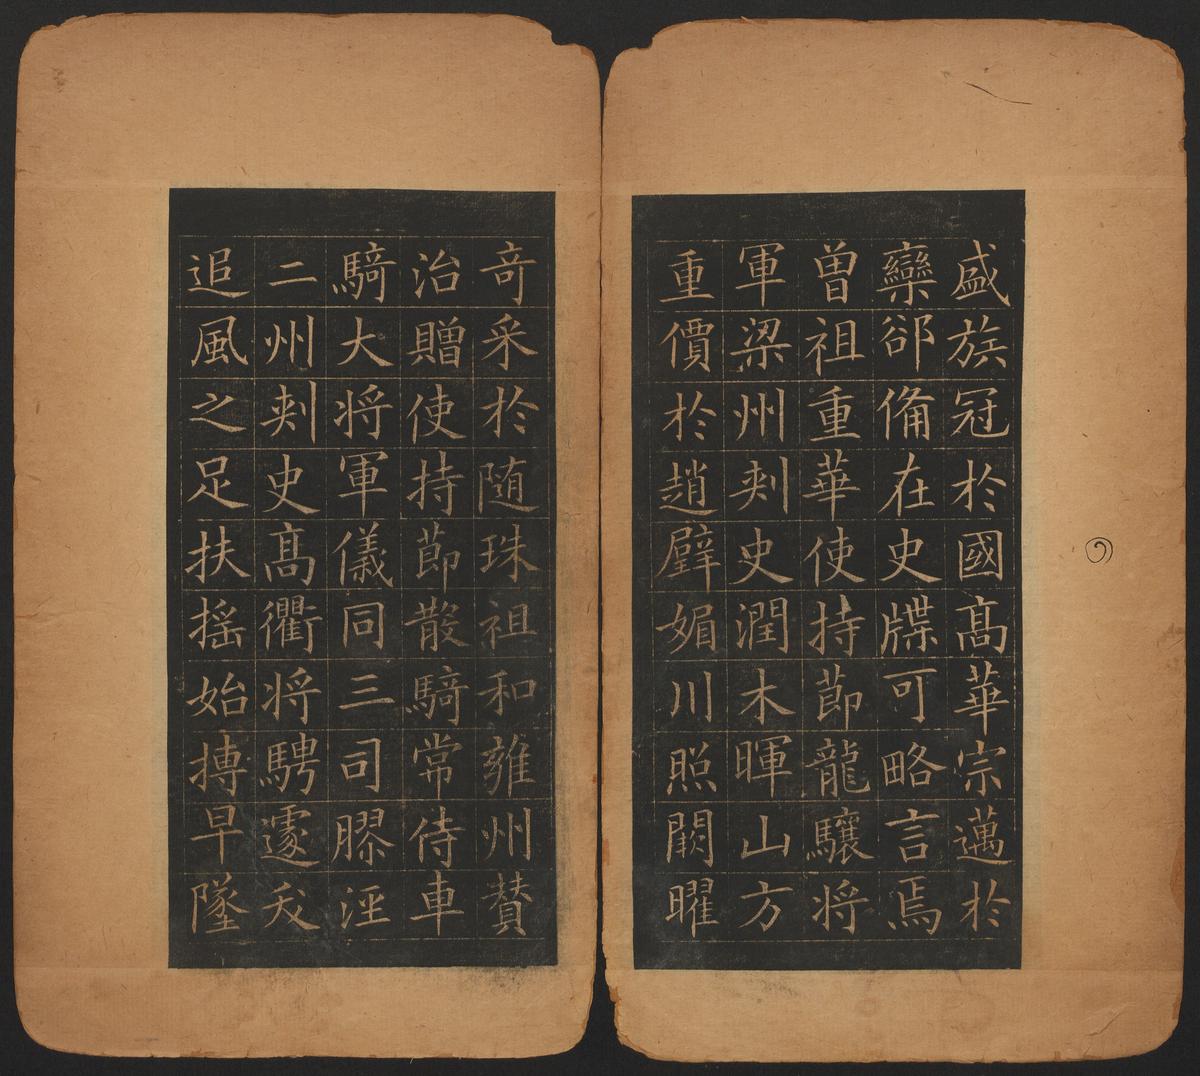 盛族冠於國髙華宗邁於
欒郤備在史牒可略言焉
曽祖重華使持莭龍驤将
軍梁州刾史潤木暉山方
重價於趙璧媚川照闕曜
竒采於随珠祖和雍州贊
治贈使持莭散騎常侍車
騎大将軍儀同三司膠涇
二州刾史髙衢将騁遽夭
追風之足扶摇始摶早墜